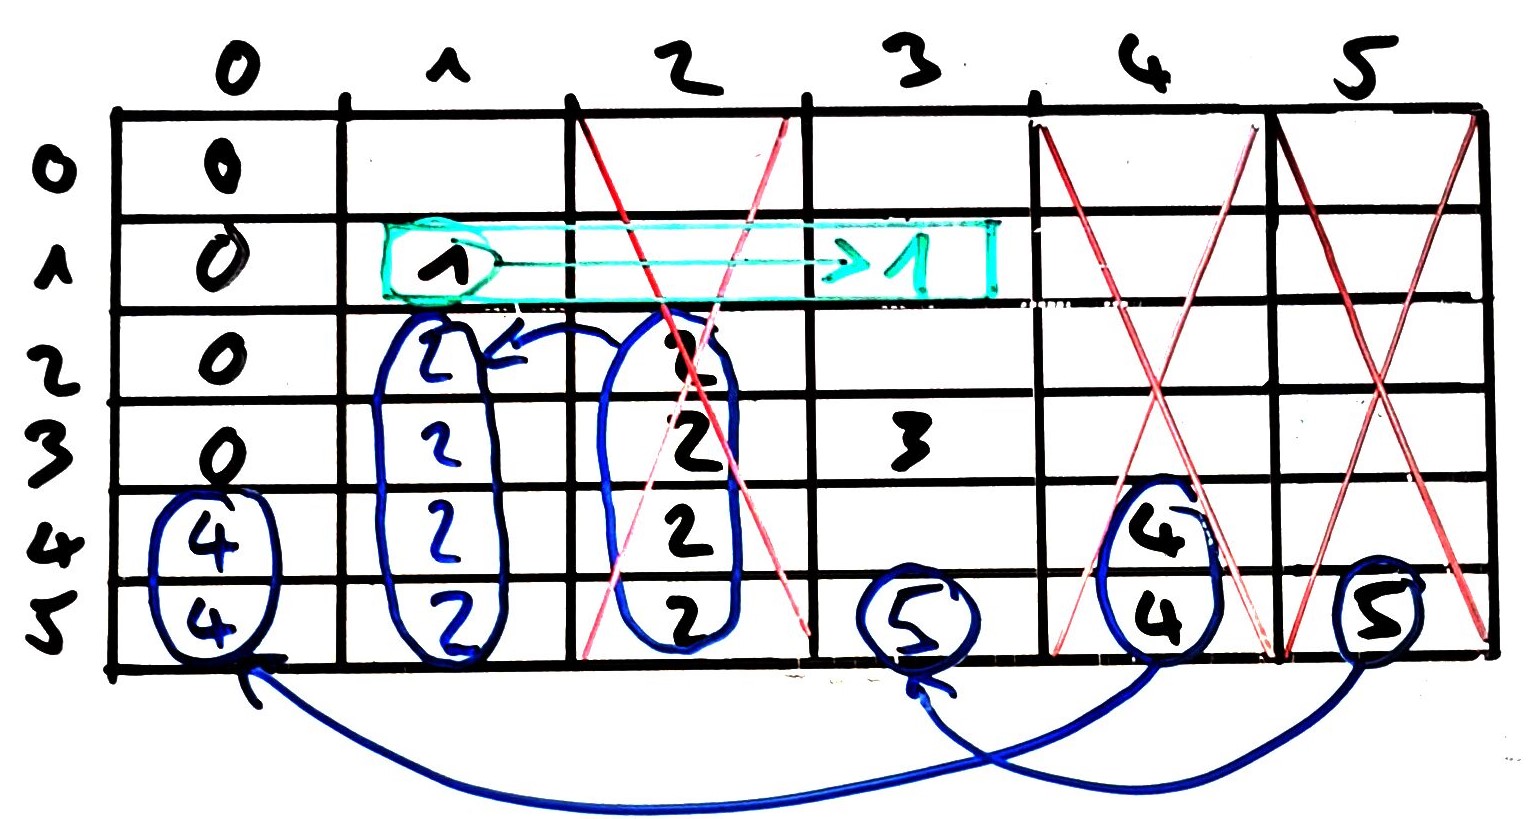 0 1 2 3 4 5
0 0
1 0 1 1
2 0 2 2
3 0 2 2 3
4 4 2 2 4
5 4 2 2 5 4 5